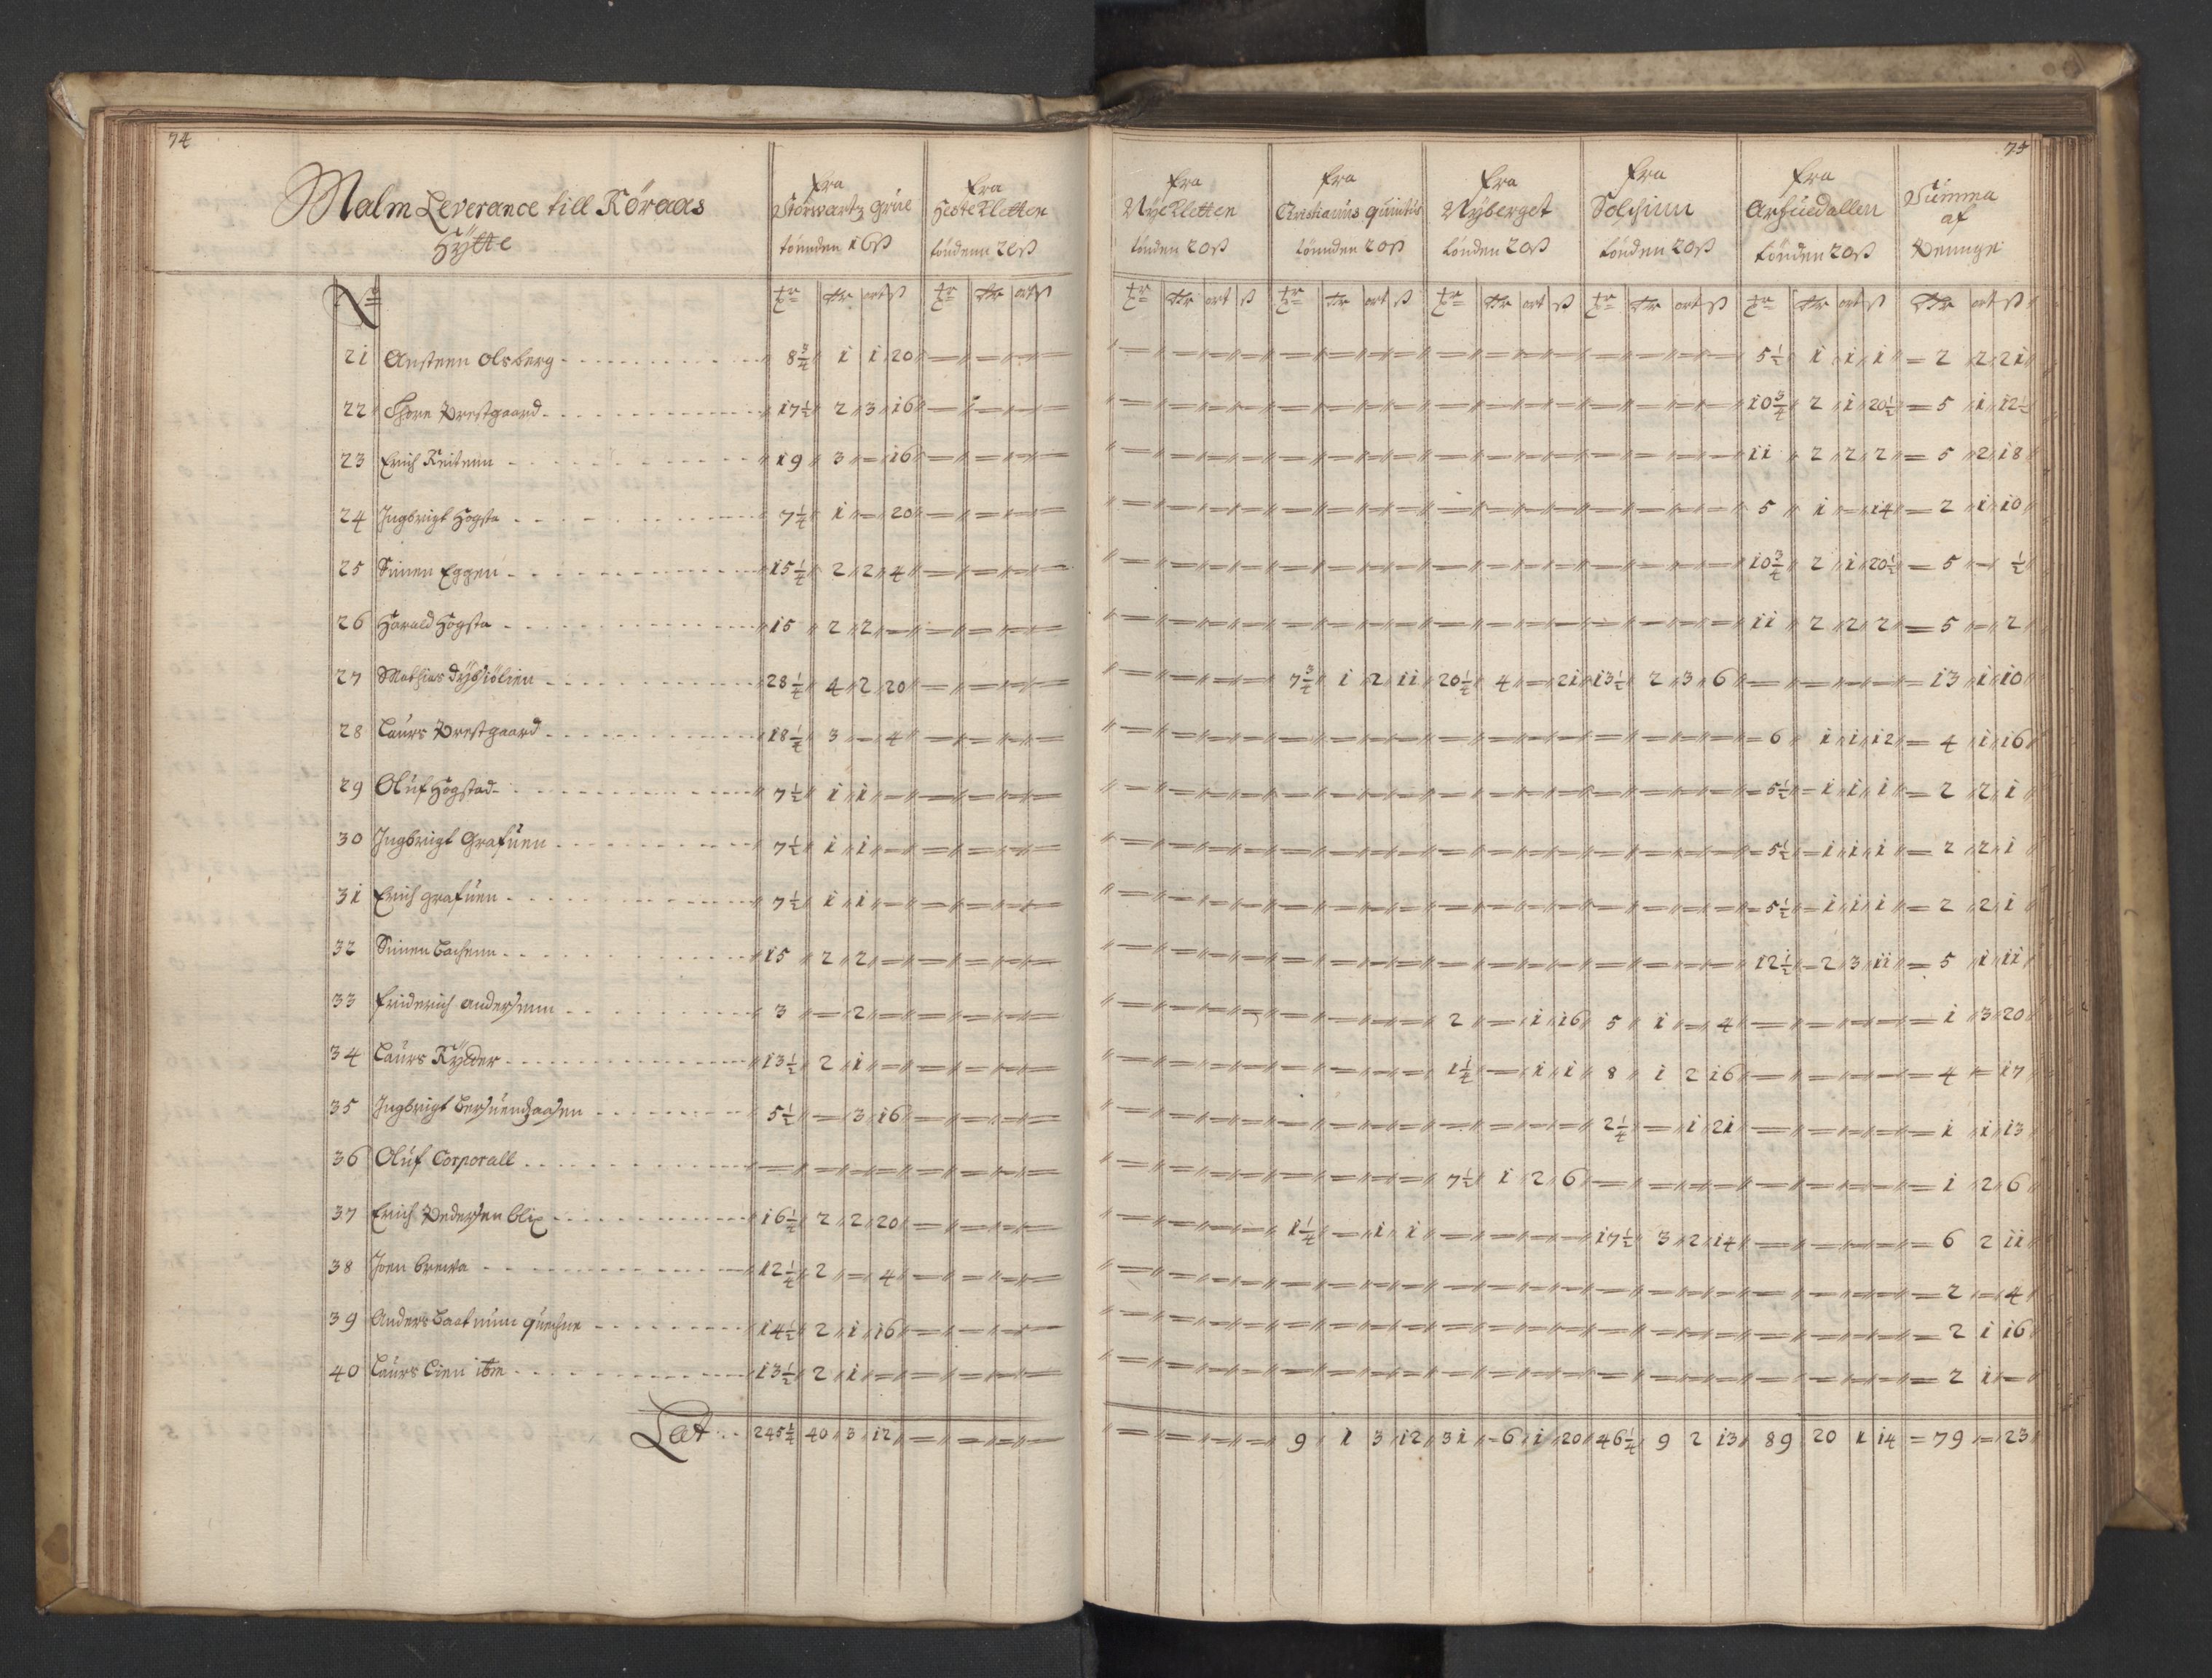 74
75
Malm Leverance till Röraas
Hÿtte
fra
Storwartz grüe
tönnden 16 ß
fra
HesteKletten
töndenn 20 ß
fra
NÿeKletten
tönden 20 ß
fra
Christianus quintus
tönnden 20 ß
fra
Nÿberget
tönden 20 ß
fra
Solskinn
tönden 20 ß
fra
Arfuedallen
tönden 20 ß
Summa
af
Pennge
No
tr dr ort ß tr dr ort ß tr dr ort ß tr dr ort ß tr dr ort ß tr dr ort ß tr dr ort ß dr ort ß
21 Ansteen Olsberg 8¾ 1 1 20 5½ 1 1 1 2 2 21
22 Thore Prestgaard 17½ 2 3 16 10¾ 2 1 20½ 5 1 12½
23 Erich Reitenn 19 3 16 11 2 2 2 5 2 18
24 Ingbrigt Hogsta 7¼ 1 20 5 1 14 2 1 10
25 Simen Eggen 15¼ 2 2 4 10¾ 2 1 20½ 5 ½
26 Harald Hogsta 15 2 2 11 2 2 2 5 2
27 Mathias 28¼ 4 2 20 7¾ 1 2 11 20¼ 4 21 13½ 2 3 6 13 1 10
28 Laurs Prestgaard 18¼ 3 4 6 1 1 12 4 1 16
29 Oluf Hogstad 7½ 1 1 5½ 1 1 1 2 2 1
30 Ingbrigt Grafuen 7½ 1 1 5½ 1 1 1 2 2 1
31 Erich grafuen 7½ 1 1 5½ 1 1 1 2 2 1
32 Simen Bachenn 15 2 2 12½ 2 3 11 5 1 11
33 Friderich Andersenn 3 2 2 1 16 5 1 4 1 3 20
34 Laurs Rÿtter 13½ 2 1 1¼ 1 1 8 1 2 16 4 17
35 Ingbrigt 5½ 3 16 2¼ 1 21 1 1 13
36 Oluf Corporall 7½ 1 2 6 1 2 6
37 Erich Pedersen Blix 16¼ 2 2 20 1¼ 1 1 17½ 3 2 14 6 2 11
38 Joen Brewa 12¼ 2 4 2 4
39 Anders 14½ 2 1 16 2 1 16
40 Laurs Lien 13½ 2 1 2 1
Lat 245¼ 40 3 12 9 1 3 12 31 6 1 20 46¼ 9 2 13 89 20 1 14 79 23